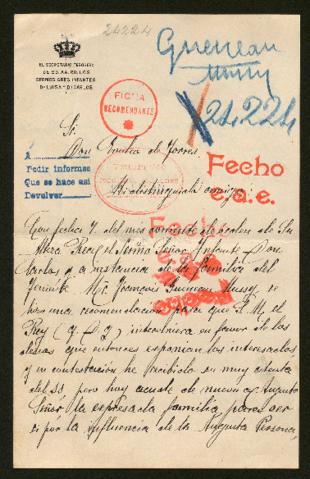 24224
EL SECRETARIO TESORERO
DE SS. AA. RR. LOS
SERMOS. SRES. INFANTES
Dª LUISA Y DN. CARLOS
Guerrean
24.224
FICHA
RECOMENDANTE
Sr.
Don Emilio de Torres
A
Pedir informes
Que se hace así
Devolver
Mi distinguido amigo:
Fecho
e.s.e.
Con fecha 7 del mes corriente de orden de Su
Alteza Real el Señor Infante Don
Carlos y a instancia de la familia del
Teniente Mr. François Mussy, se
hizo una recomendación para que S. M. el
Rey (q. D. g.) intercediera en favor de los
deseos que entonces exponían los interesados
y en contestación he recibido su muy atenta
del 23, pero hoy acude de nuevo a Augusto
Señor la expresada familia para ver
si por la influencia de la Augusta Persona,